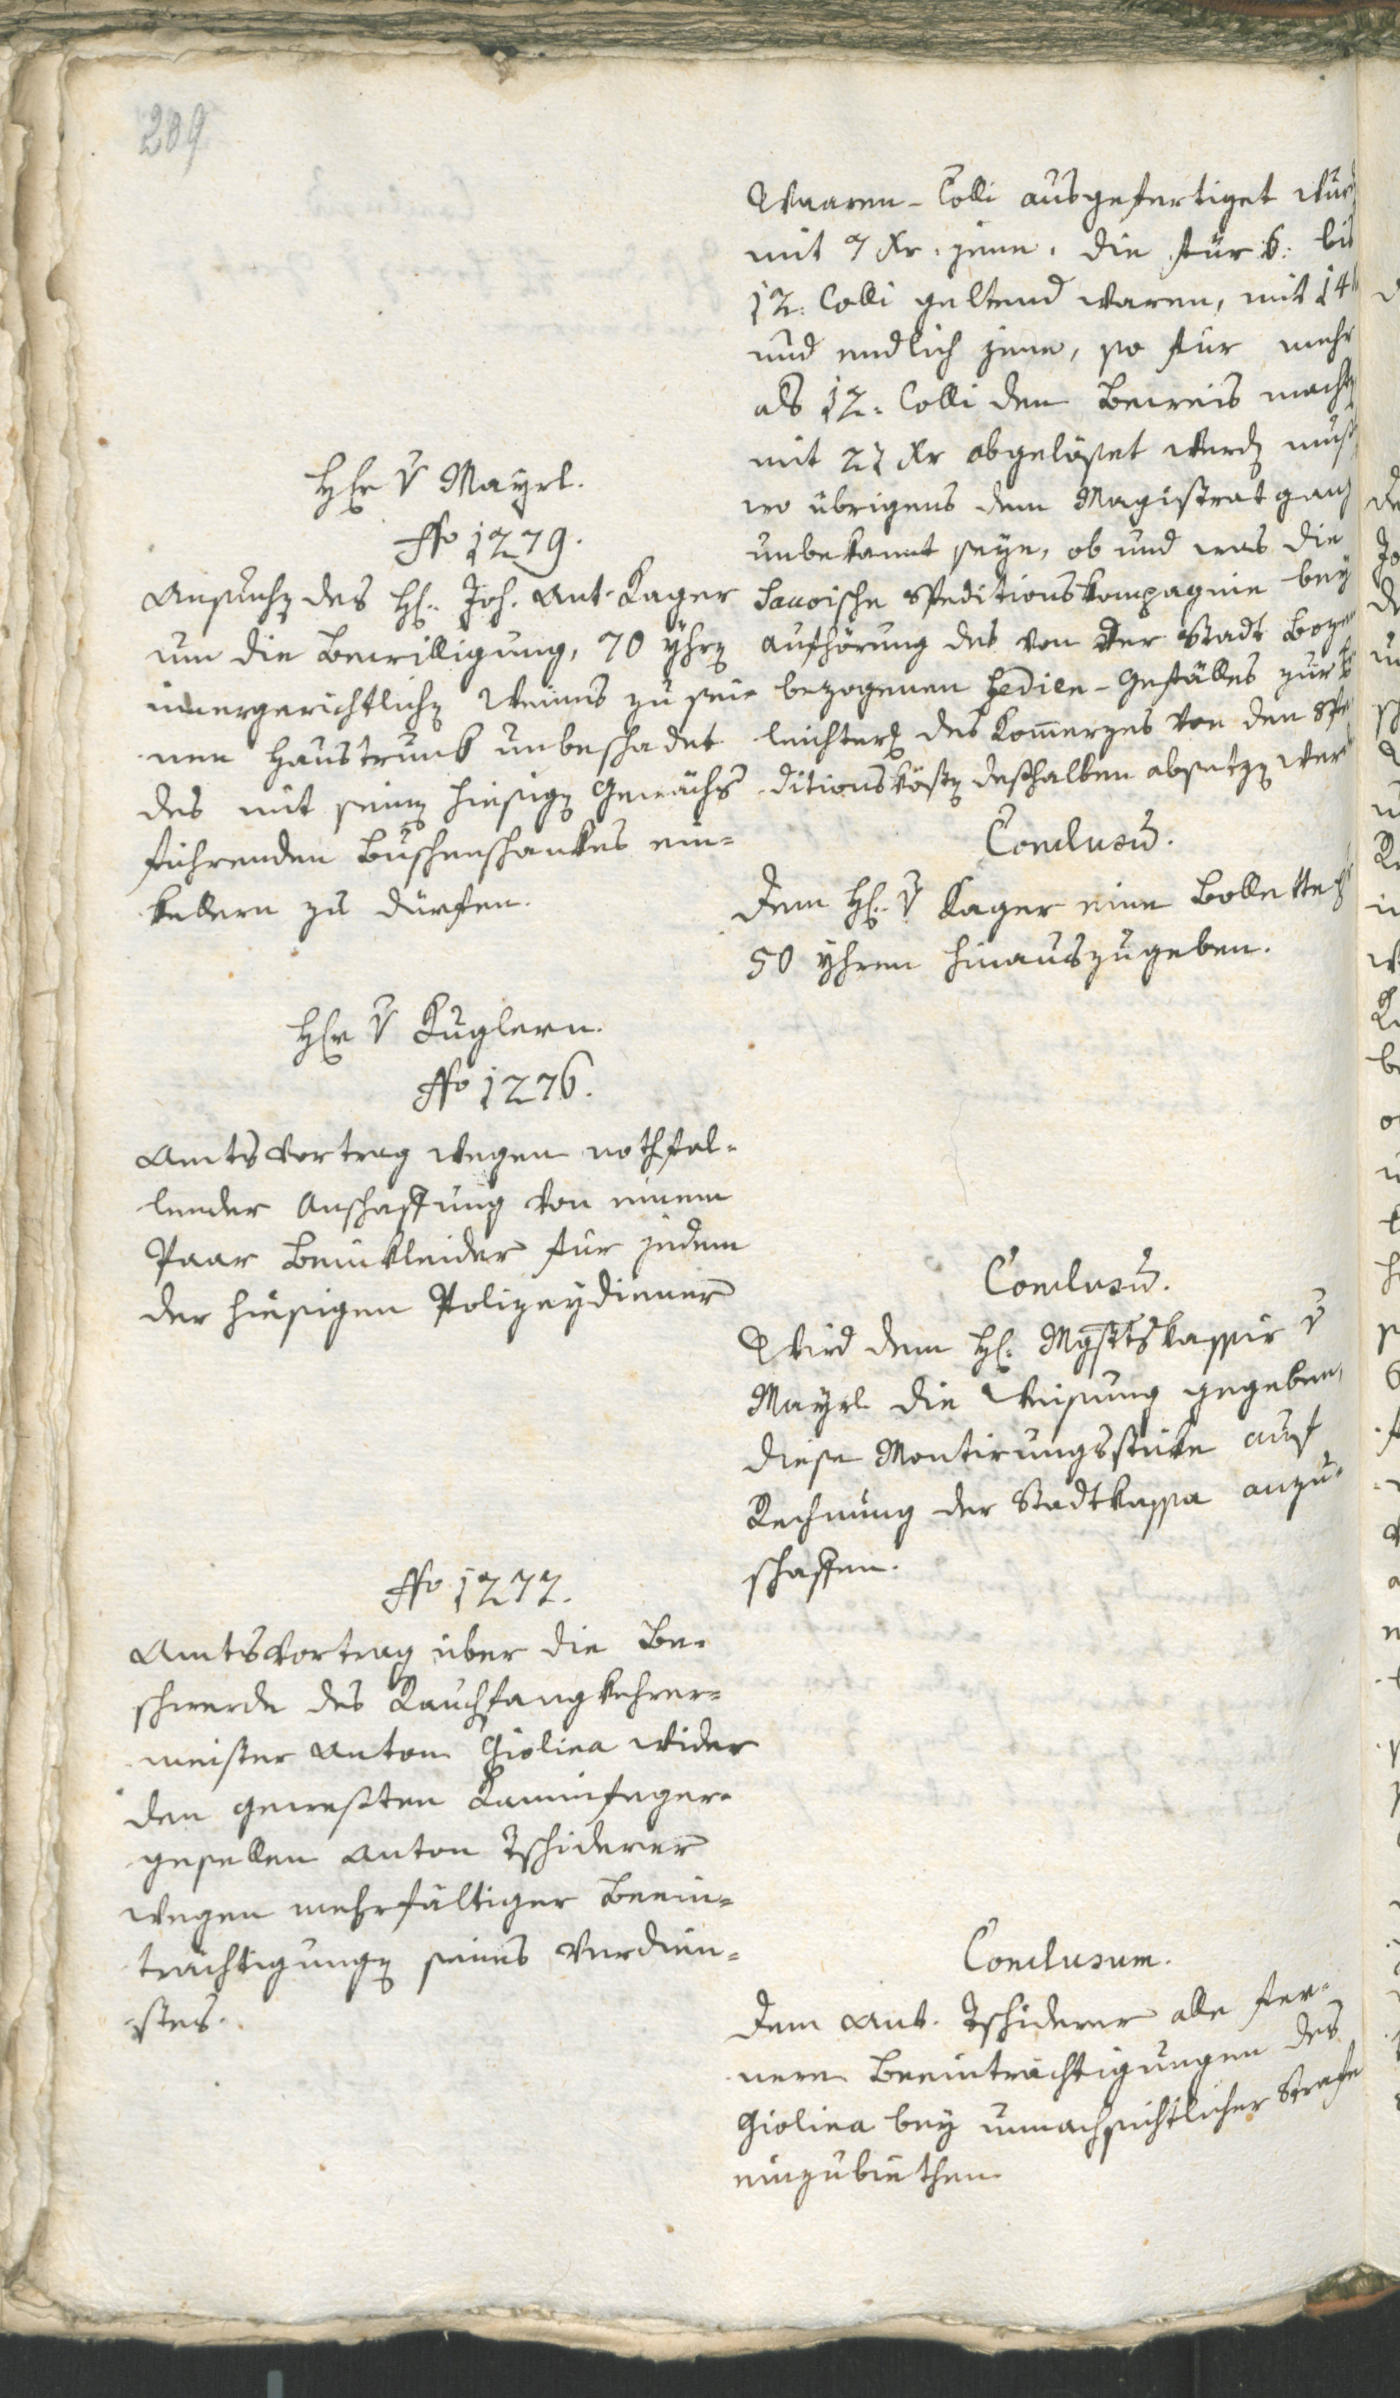 209
Hr v Mayrl.
No 1279.
Ansuchen des H. Joh. Ant. Kager
um die Bewilligung, 70 Yhrn
innergerichtlichen Weines zu sei¬
nen Haustrunk unbeschadet
des mit seinen hiesigen Gewächs
führenden Buschenschankes ein=
kellern zu dürfen.
Hr v Kuglern.
No 1276.
Amtsvortrag wegen nothfal=
lender Anschaffung von einem
Paar Beinkleider für jedem
der hiesigen Polizeydiener
No 1277.
Amtsvortrag über die Be=
schwerde des Rauchfangkehrer=
meister Anton Giolina wider
den gewesten Kaminfeger=
gesellen Anton Tschiderer
wegen mehrfältiger Beein=
trächtigungen seines Verdien=
stes.
Waaren-Colli ausgefertiget
mit 7 Kr. jene, die für 6: bis
12. Colli geltend waren, mit 14
und endlich jene, so für mehr
als 12. Colli den Beweis
mit 21 Kr abgelöset werden
wo übrigens dem Magistrat ganz
unbekannt seye, ob und was die
Savoische Speditionskompagnie bey
Aufhörung des von der Stadt Bozen
bezogenen Gefälles zur
leichter des Kommerzes von den
ditionskösten desshalben
Conclusum.
Dem H. v Kager eine Bollette
50 Yhren hinauszugeben.
Conclusum.
Wird dem H. Mgstrtskassir v
Mayrl die Weisung gegeben,
diese Montirungsstüke auf
Rechnung der Stadtkassa anzu=
schaffen.
Conclusum.
Dem Ant. Tschiderer alle fer=
nere Beeinträchtigungen des
Giolina bey unnachsichtlicher Strafe
einzubiethen